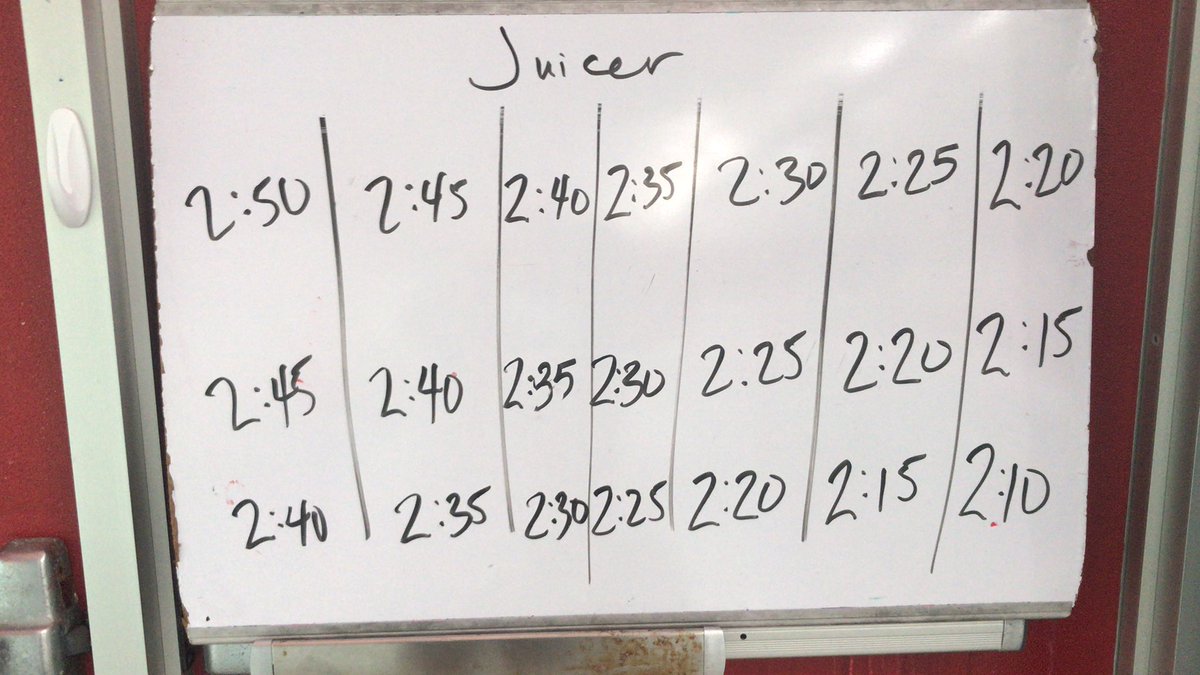 Juicer
2:50 2:45 2:40 2:35 2:30 2:25 2:20
2:45 2:40 2:35 2:30 2:25 2:20 2:15
2:40 2:35 2:30 2:25 2:20 2:15 2:10